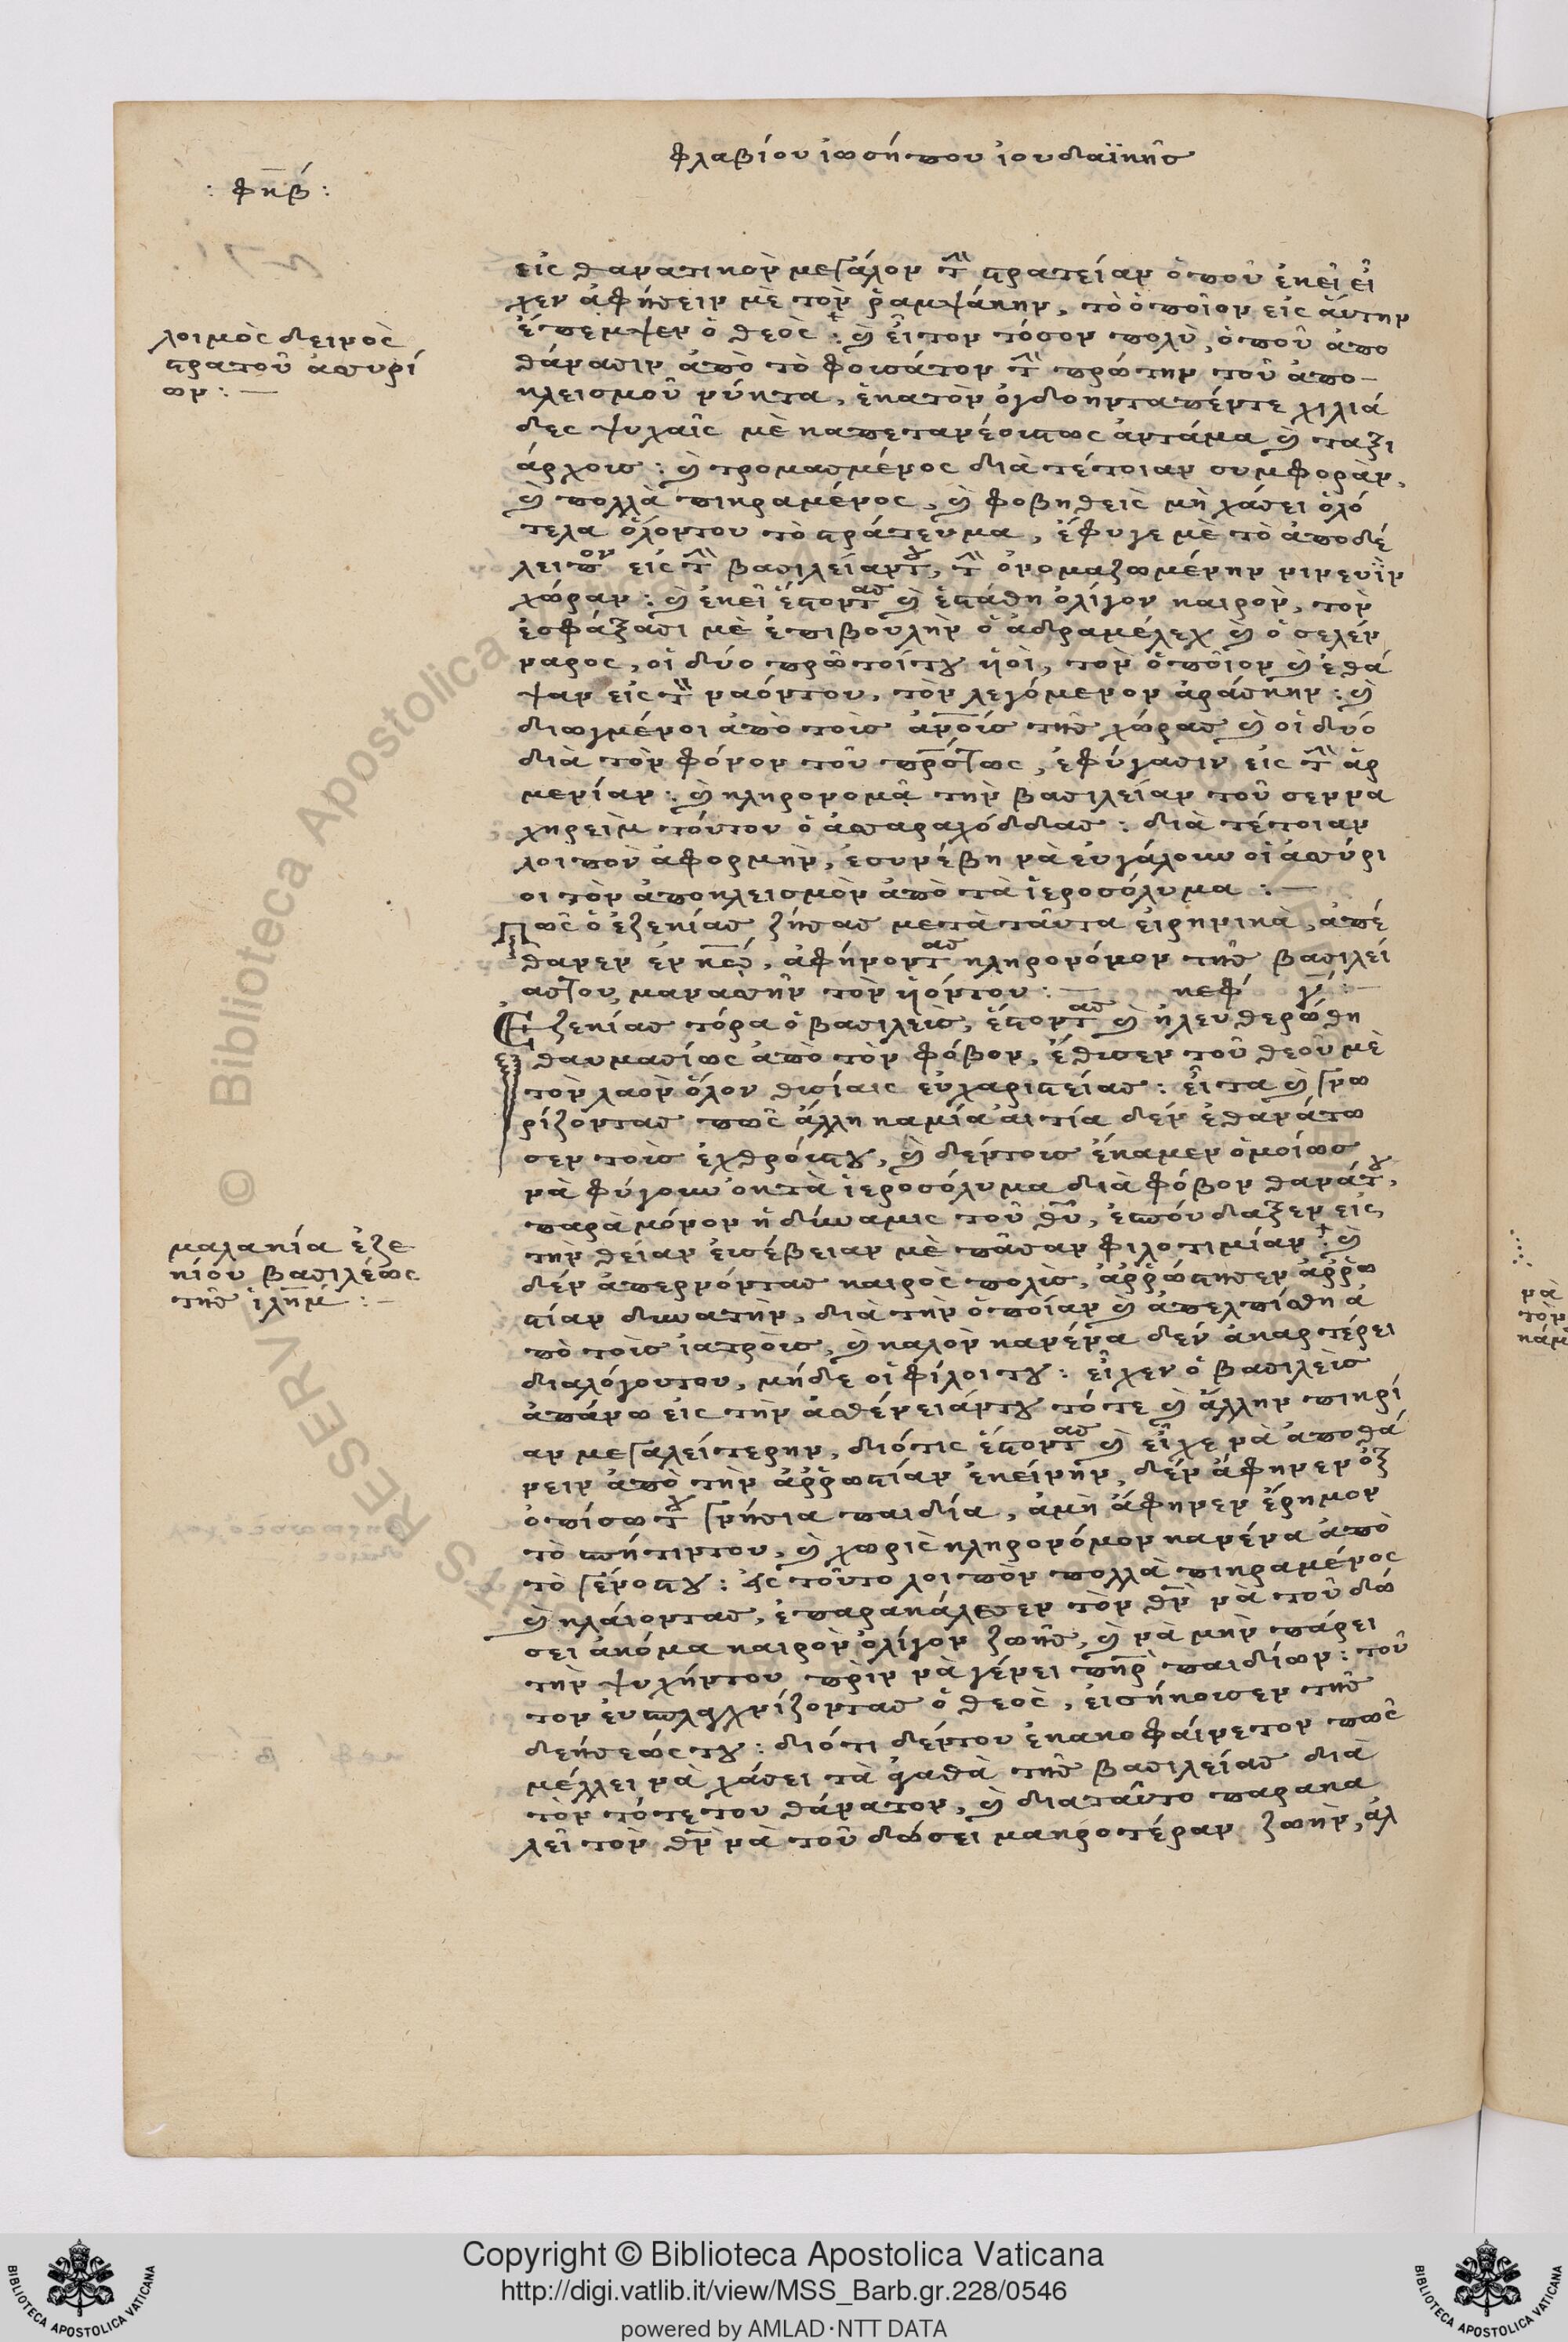 φλαβίου ἰωσήπου ἰουδαϊκῆς
: φκβ :
εἰς θανατικὸν μεγάλον τ̑ στρατείαν ὁποῦ ἐκεῖ εἶ
χεν ἀφήσειν μὲ τὸν ῥαμψάκην, τὸ ὁποῖον εἰς ἄυτην
ἔπεμψεν ὁ θεὸς : κ̀ εἶτον τόσον πολὺ, ὁποῦ ἀπο
λοιμὸς δεινὸς
στρατοῦ ἀσυρί
ων : —
θάνασιν ἀπὸ τὸ φοισάτον τ̑ πρώτην τοῦ ἀπο-
κλεισμοῦ νύκτα, ἑκατὸν ὀγδοῆντα πέντε χιλιά
δες ψυχαῖς μὲ καπετανέοιστως ἀντάμα κ̀ ταξι
άρχοις : κ̀ τρομασμένος διὰ τέτοιαν συμφορὰν,
κ̀ πολλὰ πικραμένος, κ̀ φοβηθεὶς μὴ χάσει ὁλό
τελα ὅλοντου τὸ στράτευμα, ἔφυγε μὲ τὸ ἀποδέ
λειπον εἰς τ̑ βασιλείαντου, τ̑ ὀνομαζωμένην νινευῒν
χώραν : κ̀ ἐκεῖ ἔστοντας κ̀ ἐστάθη ὀλίγον καιρὸν, τὸν
ἐσφάξασι μὲ ἐπιβουλὴν ὁ ἀδραμέλεχ κ̀ ὁ σελέν
ναρος, οἱ δύο πρῶτοίτου ὑοὶ, τὸν ὁποῖον κ̀ ἐθά
ψαν εἰς τ̑ ναόντου, τὸν λεγόμενον ἀράσκην : κ̀
διωγμένοι ἀπὸ τοὶς ἀν̅οίς τῆς χώρας κ̀ οἱ δυό
διὰ τὸν φόνον τοῦ πρ̅οίτως, ἐφύγασιν εἰς τ̑ ἀρ
μενίαν : κ̀ κληρονομᾶ τὴν βασιλείαν τοῦ σεννα
χηρεὶμ τούτου ὁ ἀσαραχόδδας : διὰ τέτοιαν
λοιπὸν ἀφορμὴν, ἐσυνέβη νὰ εὐγάλουν οἱ ἀσύρι
οι τὸν ἀποκλεισμὸν ἀπὸ τὰ ἱεροσόλυμα : —
Πῶς ὁ ἐζεκίας ζήσας μετὰ ταῦτα εἰρηνικὰ, ἀπέ
θανεν ἐν κ̅ῶ, ἀφήνοντας κληρονόμον τῆς βασιλεί
αςτου, μανασῆν τὸν ὑόντου : — κεφ γ̅ : —
Ἐζεκίας τόρα ὁ βασιλεὺς, ἔστοντας κ̀ ἠλευθερώθη
θαυμασίως ἀπὸ τὸν φόβον, ἔθισεν τοῦ θεοῦ μὲ
τὸν λαὸν ὅλον θισίαις εὐχαριστείας : εἶτα κ̀ γνω
ρίζοντας πῶς ἄλλη καμία ἀιτία δέν ἐθανάτω
σεν τοὶς ἐχθρόιστου, κ̀ δέντοις ἔκαμεν ὁμοίως
νὰ φύγουν ὀκτὰ ἱεροσόλυμα διὰ φόβον θανάτου,
παρὰ μόνον ἡ δύναμις τοῦ θ̅υ̅, ἐσπόυδαξεν εἰς
μαλακία ἐζε
κίου βασιλέως
τῆς ἱλη̅μ : —
τὴν θείαν ἐυσέβειαν μὲ πᾶσαν φιλοτιμίαν : κ̀
δέν ἀπερνόντας καιρὸς πολὶς, ἀῤῥώστησεν ἀῤῥω
στίαν δυνατὴν, διὰ τὴν ὁποίαν κ̀ ἀπελπίσθη ἀ
πὸ τοὶς ἰατρὸις, κ̀ καλὸν κανένα δέν ἀναρτέρει
διαλόγουτου, μήδε οἱ φίλοιτου : εἶχεν ὁ βασιλεὶς
ἀπάνω εἰς τὴν ἀσθένειάντου τότε κ̀ ἄλλην πικρί
αν μεγαλείτερην, διότις ἔστοντας κ̀ εἶχε νὰ ἀποθά
νειν ἀπὸ τὴν ἀῤῥωστίαν ἐκείνην, δέν ἄφηνεν ὄξ
ὀπίσωτου γνήσια παιδία, ἀμὴ ἄφηνεν ἔρημον
τὸ σπήτιντου, κ̀ χωρὶς κληρονόμον κανένα ἀπὸ
τὸ γένοστου : ἐς τοῦτο λοιπὸν πολλὰ πικραμένος
κ̀ κλάιοντας, ἐπαρακάλεσεν τὸν θ̅ν̅ νὰ τοῦ δώ
σει ἀκόμα καιρὸν ὀλίγον ζωῆς, κ̀ νὰ μὴν πάρει
τὴν ψυχήντου πρὶν νὰ γένει π̅η̅ρ̅ παιδίων : τοῦ
τον ἐυσπλαχνίζοντας ὁ θεὸς, ἐισήκοισεν τῆς
δεήσεώςτου : διότι δέντου ἐκακοφάινετον πῶς
μέλλει νὰ χάσει τὰ ἀγαθὰ τῆς βασιλείας διὰ
τὸν τότετου θάνατον, κ̀ διαταῦτο παρακα
λεῖ τὸν θ̅ν̅ νὰ τοῦ δώσει μακροτέραν ζωὴν, ἀλ
νὰ
τὸν
κάμ
Copyright © Biblioteca Apostolica Vaticana
http://digi.vatlib.it/view/MSS_Barb.gr.228/0546
powered by AMLAD·NTT DATA
BIBLIOTECA APOSTOLICA VATICANA
BIBLIOTECA APOSTOLICA VATICANA